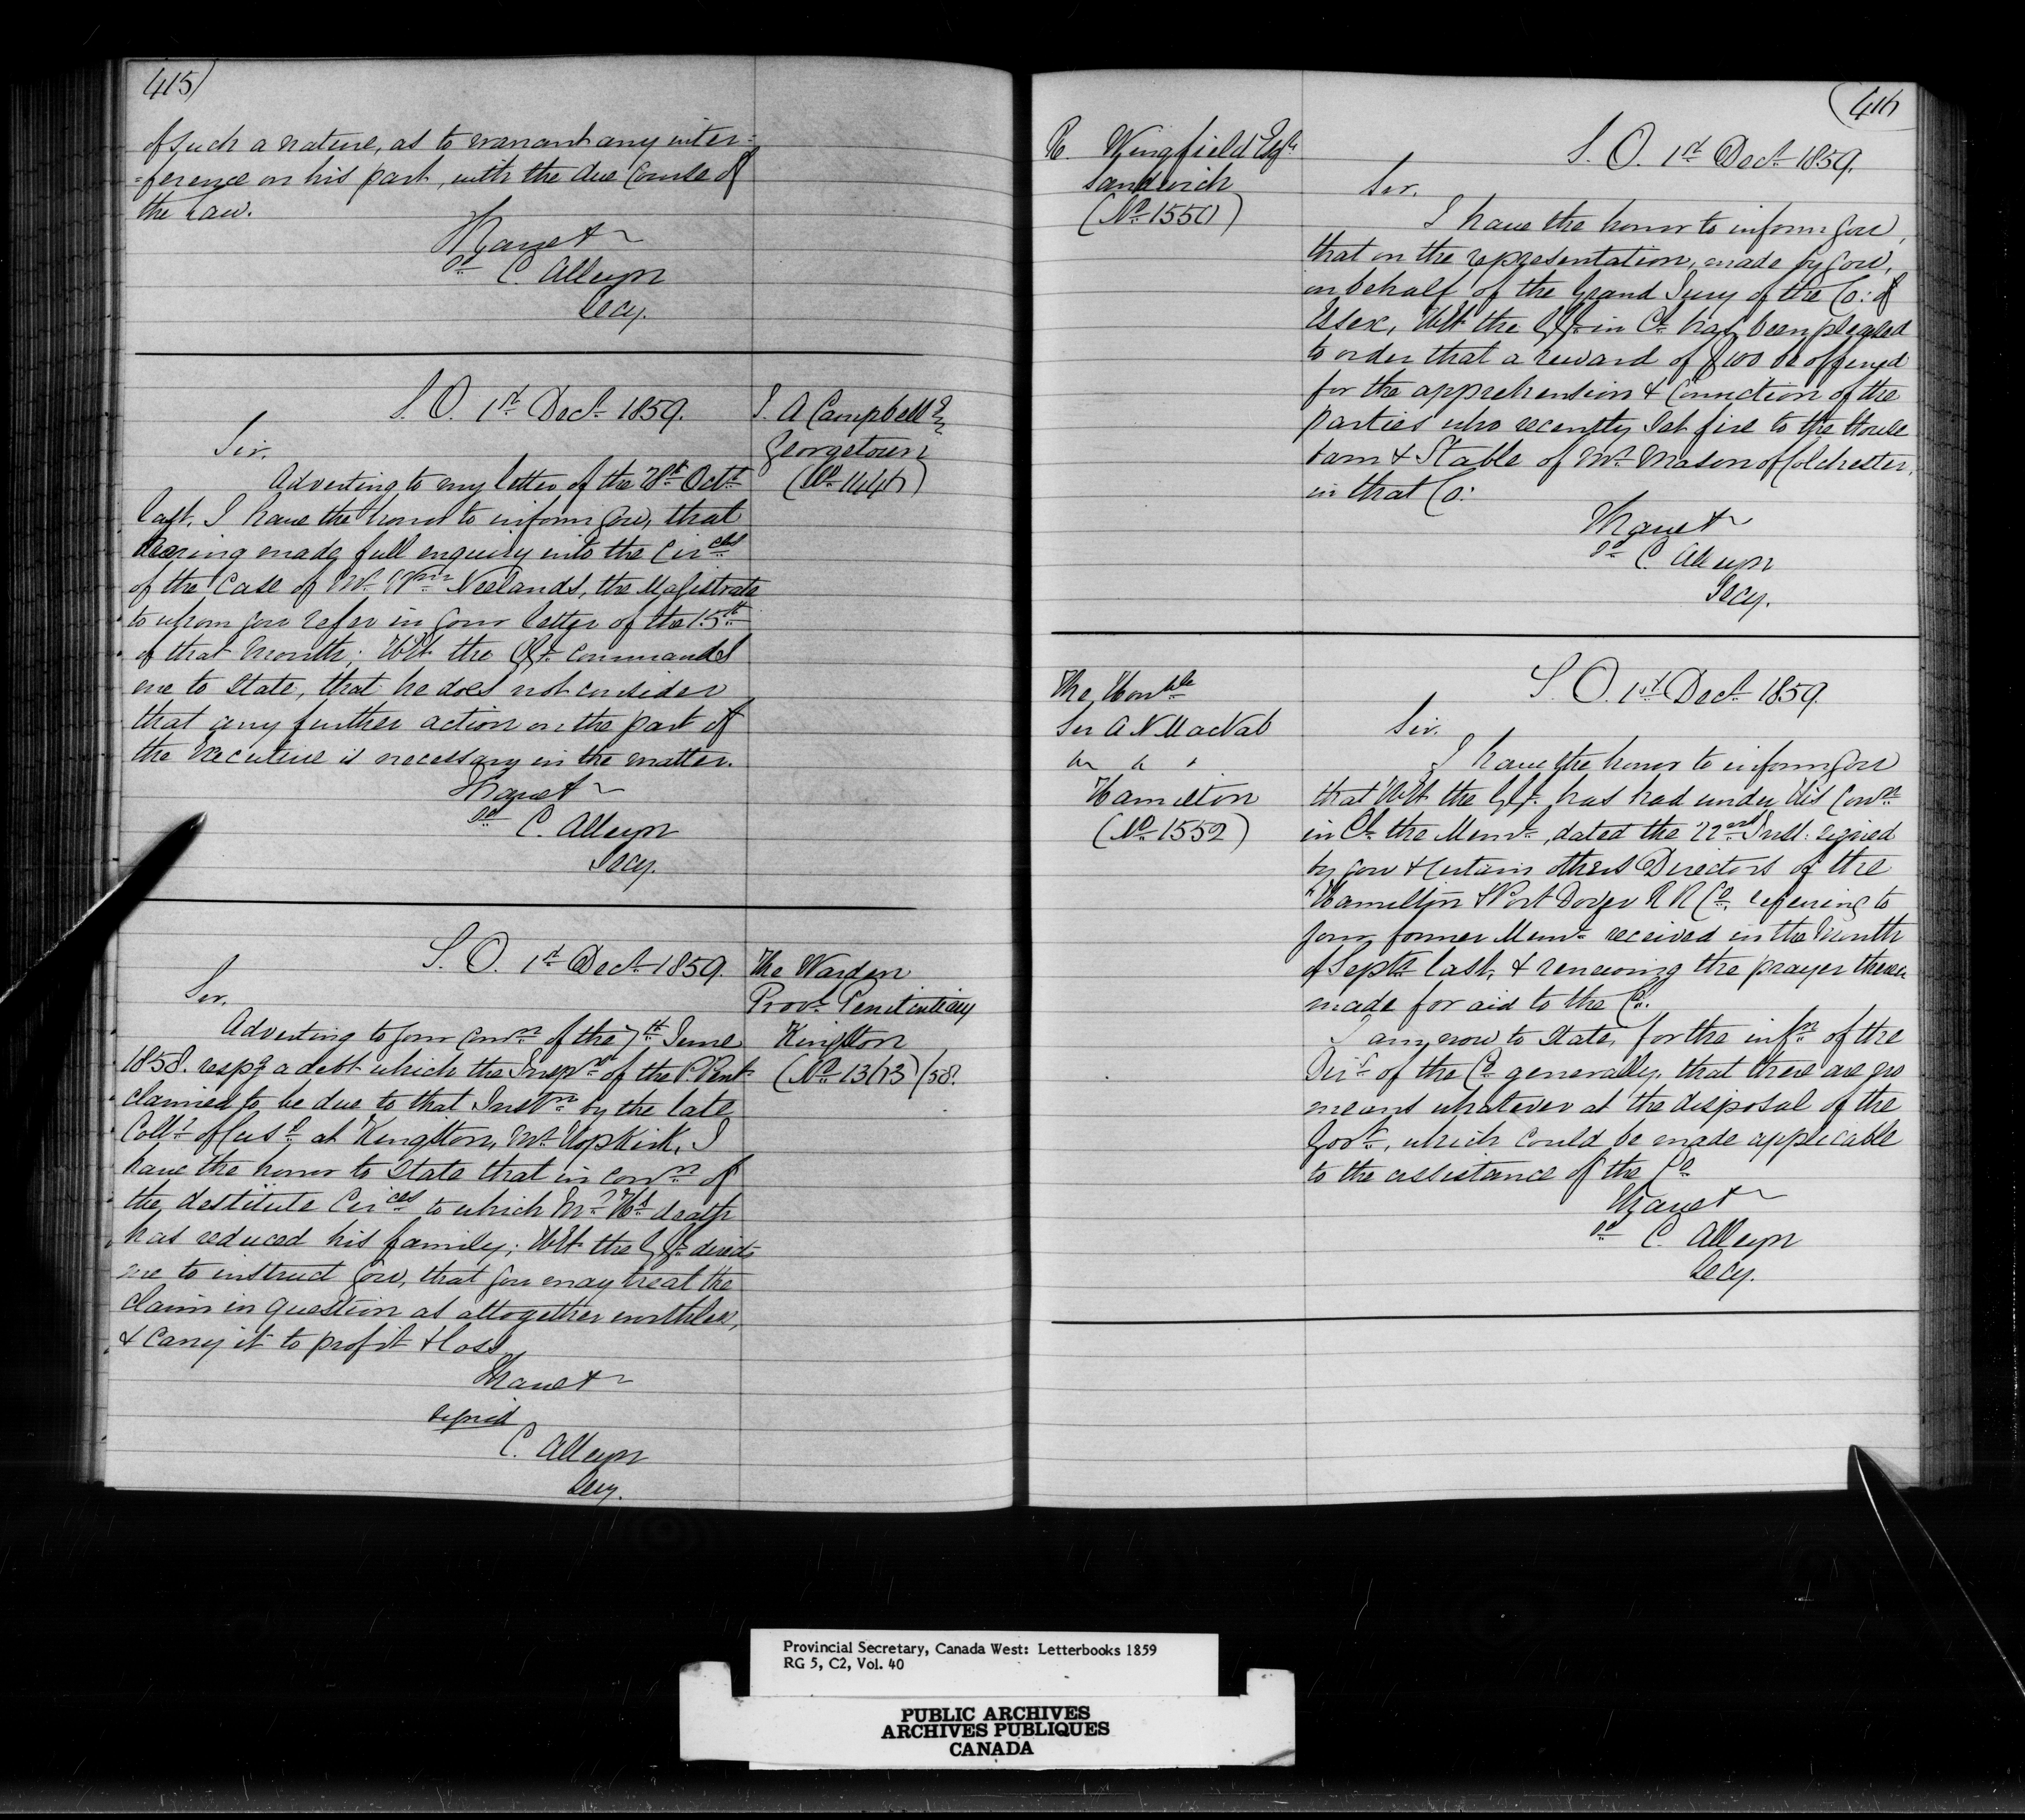 415)
of such a nature, as to warrant any inter=
=ference on his part, with the due Course of
the Law.
I have &c
sd C. Alleyn
Secy.
S. O. 1st Decr 1859.
J. A Campbell Esq
Georgetown
(No 1446)
Sir,
Adverting to my letter of the 28th Octr
last, I have the honor to inform you, that
having made full enquiry into the Circes
of the Case of Mr Wm Neelands, the Magistrate
to whom you refer in your letter of the 15th
of that Month; H E the G G. commands
me to State, that he does not consider
that any further action on the part of
the Executive is necessary in the matter.
I have &c
sd C. Alleyn
Secy.
S. O. 1st Decr 1859.
The Warden
Provl Penitentiary
Kingston
(No 1313/58.
Sir,
Adverting to your Comn of the 7th June
1858. respg a debt which the Inspr of the P. Pent
claimed to be due to that Instn by the late
Collr of Cus at Kingston, Mr Hopkirk, I
have the honor to State that in conn of
the destitute Circes to which Mr H's death
has reduced his family; H E the G G. directs
me to instruct you, that you may treat the
claim in question as altogether worthless,
& carry it to profit & loss.
I have &c
signed
C. Alleyn
Secy.
416
R. Wingfield Esqr
Sandwich
(No 1550)
S. O. 1st Decr 1859.
Sir,
I have the honor to inform you,
that on the representation, made by you,
on behalf of the Grand Jury of the Co: of
Essex, H E the G G. in Cl has been pleased
to order that a reward of £100 be offered
for the apprehension & Conviction of the
parties who recently Set fire to the House
barn & Stable of Mr Mason of Colchester,
in that Co:
I have &c
sd C. Alleyn
Secy.
The Honble
Sir A N MacNab
Hamilton
(No 1552)
S. O. 1st Decr 1859.
Sir.
I have the honor to inform you
that H E the G G. has had under His Conn
in Cl the Meml, dated the 22nd Inst: signed
by you & certain others Directors of the
Hamilton & Port Dover R R Co, referring to
your former Meml received in the Month
of Septr last, & renewing the prayer therein
made for aid to the Co.
I am now to State, for the infn of the
Dirs of the Co generally, that there are no
means whatever at the disposal of the
Govt, which could be made applicable
to the assistance of the Co
I have &c
sd C. Alleyn
Secy.
Provincial Secretary, Canada West: Letterbooks 1859
RG 5, C2, Vol. 40
PUBLIC ARCHIVES
ARCHIVES PUBLIQUES
CANADA